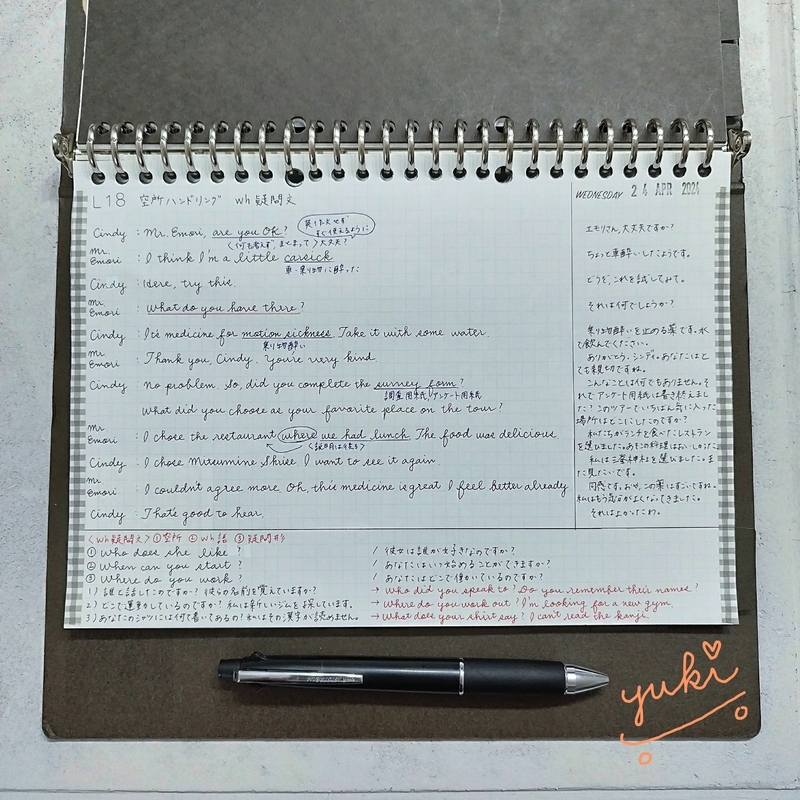 L18 空所ハンドリング Wh疑問文
WEDNESDAY 24 APR 2024
Cindy : Mr. Emori, are you OK?
英作文せず
すぐ使えるように
〈何も考えず、まとまって〉大丈夫?
Mr. Emori : I think I'm a little carsick
車・乗り物に酔った
Cindy : Here, try this.
Mr. Emori : What do you have there?
Cindy : It's medicine for motion sickness. Take it with some water.
乗り物酔い
Mr. Emori : Thank you, Cindy. You're very kind.
Cindy : No problem. So, did you complete the survey form?
調査用紙/アンケート用紙
What did you choose as your favorite place on the tour?
Mr. Emori : I chose the restaurant where we had lunch. The food was delicious
〈説明は後ろ〉
Cindy : I chose Mitsumine Shrine. I want to see it again.
Mr. Emori : I couldn't agree more. Oh, this medicine is great. I feel better already
Cindy : That's good to hear.
エモリさん、大丈夫ですか?
ちょっと車酔いしたようです。
どうぞ、これを試してみて。
それは何でしょうか?
乗り物酔いを止める薬です。水
で飲んでください。
ありがとう、シンディ。あなたはと
ても親切ですね。
こんなことは何でもありません。そ
れでアンケート用紙は書き終えまし
た?このツアーでいちばん気に入った
場所はどこにしたのですか?
私たちがランチを食べたレストラン
を選びました。あそこの料理はおいしかった。
私は三峯神社を選びました。ま
た見たいです。
同感です。おや、この薬はすごいですね。
私はもう気分がよくなってきました。
それはよかったわ。
〈Wh疑問文〉①空所 ②Wh語 ③疑問形
① Who does she like ? / 彼女は誰が好きなのですか?
② When can you start ? / あなたはいつ始めることができますか?
③ Where do you work ? / あなたはどこで働いているのですか?
1) 誰と話したのですか?彼らの名前を覚えていますか? → Who did you speak to? Do you remember their names?
2) どこで運動しているのですか?私は新しいジムを探しています。 → Where do you work out? I'm looking for a new gym.
3) あなたのシャツには何て書いてあるの?私はその漢字が読めません。 → What does your shirt say? I can't read the kanji.
yuki